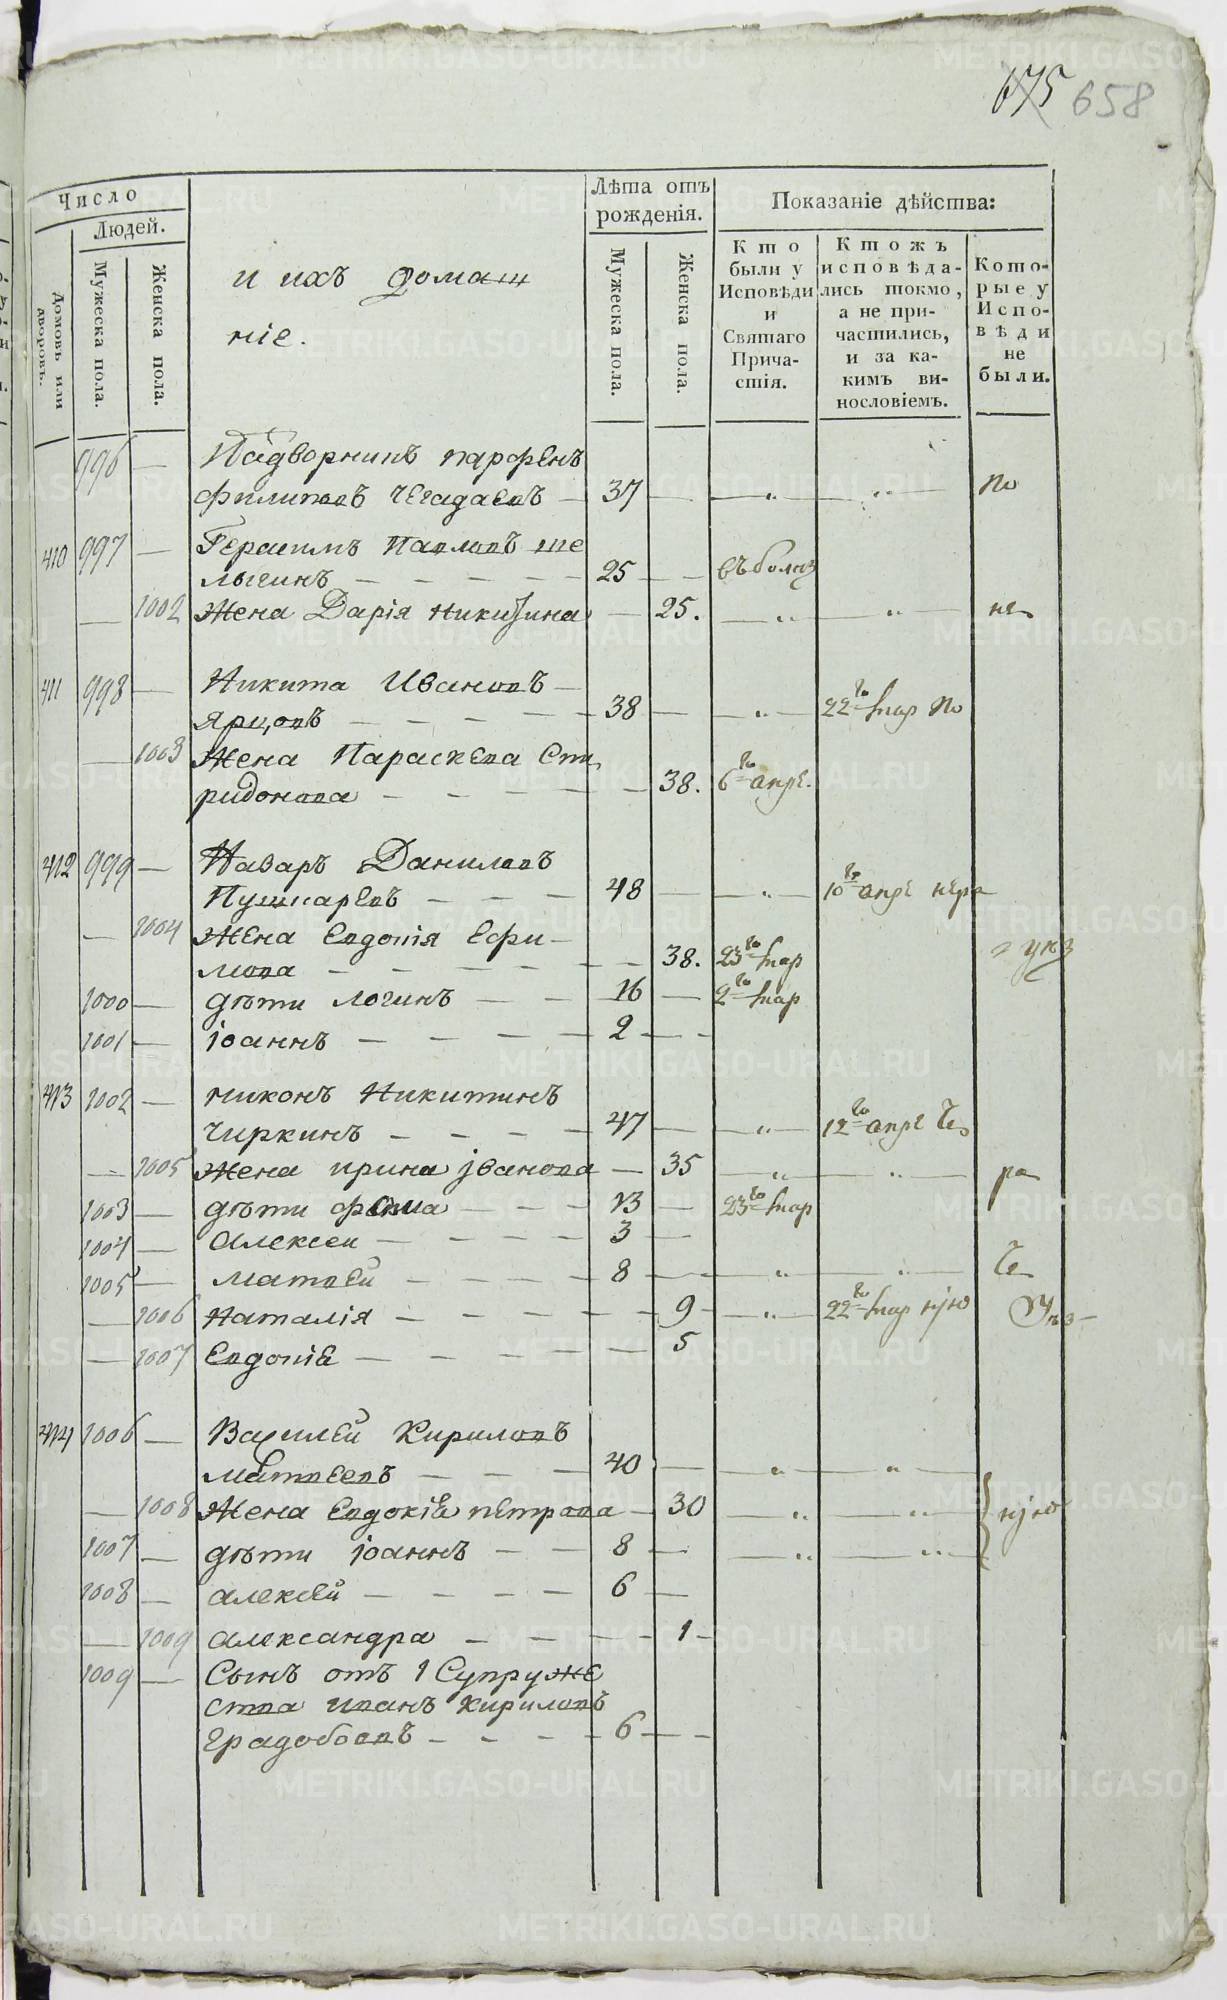 675 658
Число
Людей.
Домовъ или дворовъ.
Мужеска пола.
Женска пола.
и ихъ домаш
ніе.
Лѣта отъ рожденія.
Мужеска пола.
Женска пола.
Показаніе дѣйства:
Кто были у Исповѣди и Святаго Причастія.
Ктожъ исповѣдались токмо, а не причастились, и за какимъ винословіемъ.
Которые у Исповѣди не были.
996 — Падворникъ парфенъ
филиповъ Чегадаевъ — 37 — — „ — — „ — по
410 997 — Герасимъ Павловъ ше
лыгинъ — — — — 25 — — въ
— 1002 Жена Дарія Никитина — 25. — „ — — „ — не
411 998 — Никита Ивановъ —
Ярцовъ — — — — 38 — — „ — 22го мар по
— 1003 Жена Параскева Спи
ридонова — — — — 38. 6го апре.
412 999 — Назаръ Даниловъ
Пушкаревъ — — — 48 — — „ — 10го апре нера
— 1004 Жена Евдокія Ефи-
мова — — — — 38. 23го мар
1000 — дѣти логинъ — — 16 — 2го мар
1001 — іоаннъ — — — — 2 — —
413 1002 — никонъ Никитинъ
Чиркинъ — — — — 47 — — „ — 12го апре
— 1005 Жена ирина іванова — 35 — „ — — „ — ра
1003 — дѣти фома — — — 13 — 23го мар
1004 — алексеи — — — — 3 —
1005 — матвей — — — — 8 — — „ — — „ —
— 1006 Наталія — — — — 9 — „ — 22го мар
— 1007 Евдокіа — — — — 5
414 1006 — Василей Кириловъ
матвеевъ — — — 40 — — „ — — „ —
— 1008 Жена Евдокіа петрова — 30 — „ — — „ —
1007 — дѣти іоаннъ — — 8 — — „ — — „ —
1008 — алексей — — — — 6 —
— 1009 александра — — — — 1 —
1009 — Сынъ отъ 1 Супруже
ства иванъ кириловъ
Градобоевъ — — — — 6 — —
METRIKI.GASO-URAL.RU